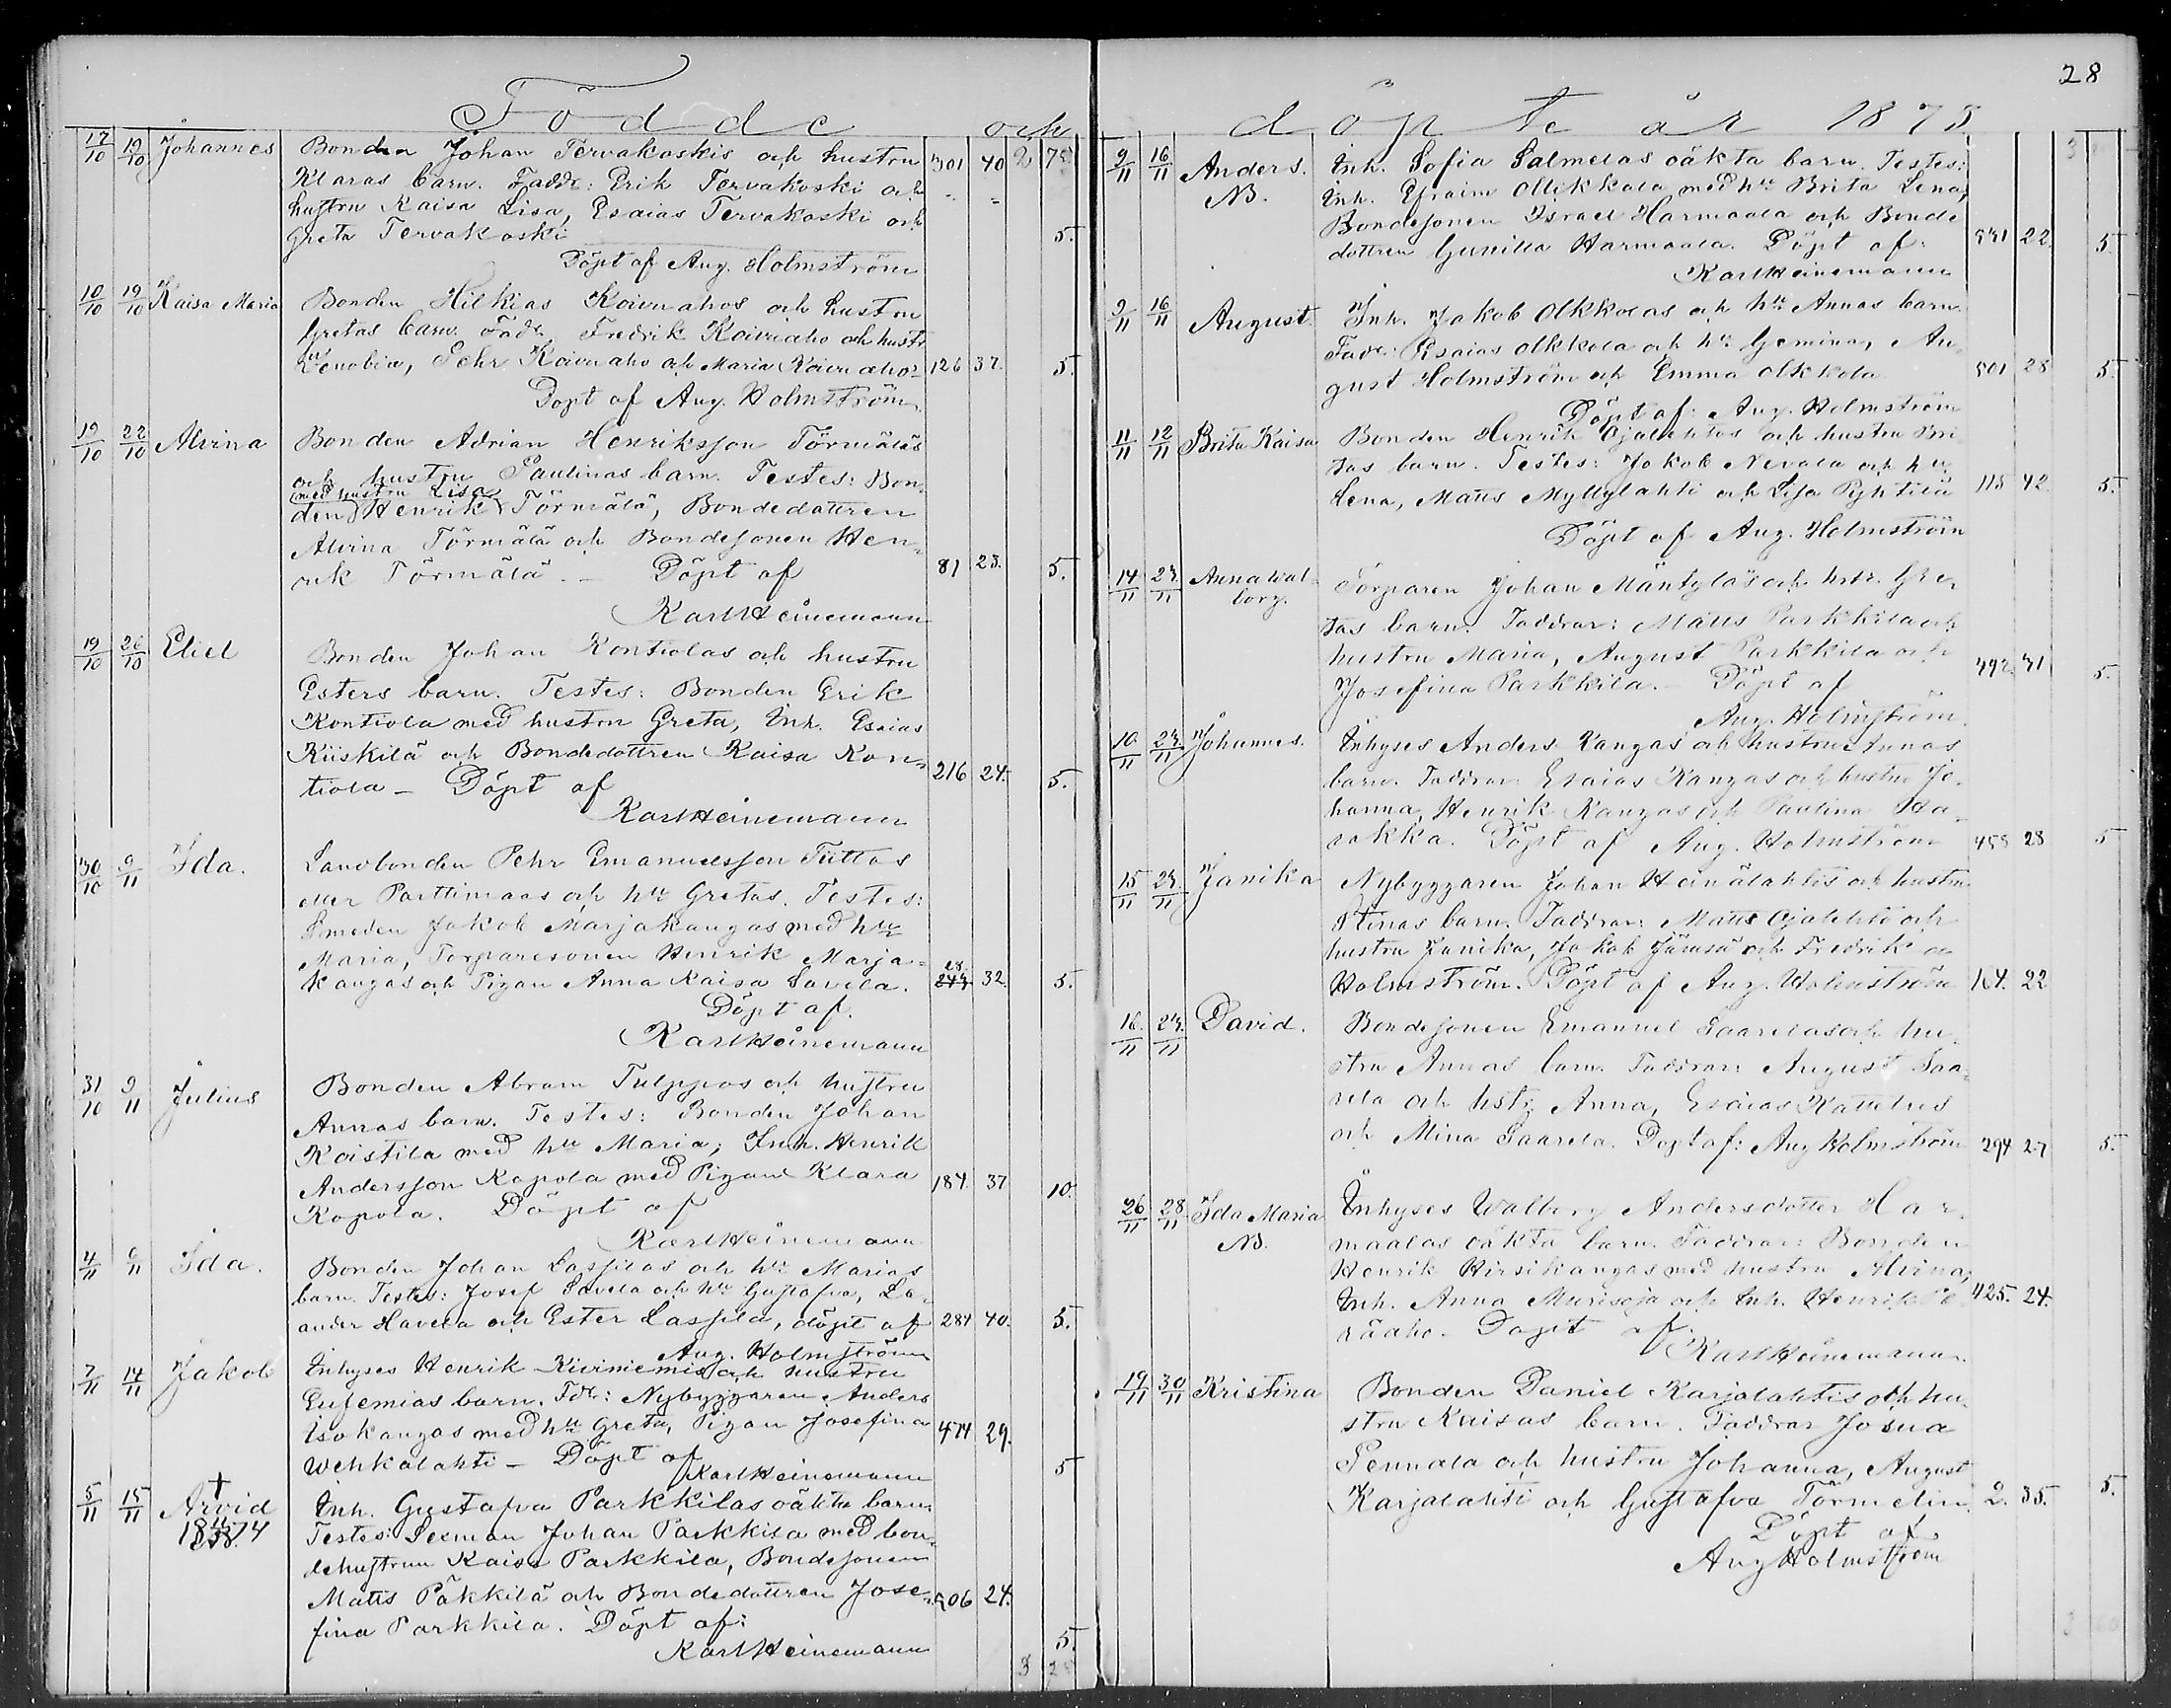 28
Födde och
17/10 19/10 Johannes Bonden Johan Tervakoskis och hustru 301 40 2 75
Klaras barn. Faddr: Erik Tervakoski och
hustru Kaisa Lisa, Esaias Tervakoski och
Greta Tervakoski 5.
Döpt af Aug. Holmström
10/10 19/10 Kaisa Maria Bonden Hilkias Koivuahos och hustru
Gretas barn. Fadr. Fredrik Koivuaho och hustr
Zenobia, Pehr Koivuaho och Maria Koivuaho 126 37. 5.
Döpt af Aug. Holmström
19/10 22/10 Alvina Bonden Adrian Henriksson Törmäläs
och hustru Paulinas barn. Testes: Bon-
med hustru Lisa
den Henrik Törmälä, Bondedottren
Alvina Törmälä och Bondesonen Hen-
rik Törmälä. – Döpt af 81 23. 5.
Karl Heinemann
19/10 26/10 Eliel Bonden Johan Kontiolas och hustru
Esters barn. Testes: Bonden Erik
Kontiola med hustru Greta, Inh. Esaias
Kiiskilä och Bondedottren Kaisa Kon-
tiola – Döpt af 216 24. 5.
Karl Heinemann
30/10 9/11 Ida. Landbonden Pehr Emanuelsson Tiittos
eller Parttimaas och hu Gretas. Testes:
Smeden Jakob Marjakangas med hu
Maria, Torparesonen Henrik Marja-
28.
kangas och Pigan Anna Kaisa Savela. 244 32. 5.
Döpt af.
Karl Heinemann
31/10 9/11 Julius Bonden Abram Tulppos och hustru
Annas barn. Testes: Bonden Johan
Koistila med hu Maria; Inh. Henrik
Andersson Kopola med Pigan Klara 184. 37 10.
Kopola. Döpt af
Karl Heinemann
4/11 6/11 Ida. Bonden Johan Lassilas och hu Marias
barn. Testes: Josef Savela och hu Gustafva, Le-
ander Havela och Ester Lassila, döpt af 284 40. 5.
Aug. Holmström
7/11 14/11 Jakob Inhyses Henrik Kiviniemis och hustru
Eufemias barn. Fdr: Nybyggaren Anders
Isokangas med hu Greta, Pigan Josefina 474 29.
Wehkalahti – Döpt af 5
Karl Heinemann
5/11 15/11 Arvid Inh. Gustafva Parkkilas oäkta barn.
Testes: Lexman Johan Parkkila med bon-
dehustrun Kaisa Parkkila, Bondesonen
Matts Päkkilä och Bondedottren Jose- 506 24.
fina Parkkila. Döpt af: 5.
Karl Heinemann
döpte år 1875
9/11 16/11 Anders. Inh. Sofia Salmelas oäkta barn. Testes:
NB. Inh. Efraim Ollikkala med hu Brita Lena,
Bondesonen Israel Harmaala och Bonde
dottren Gunilla Harmaala. Döpt af: 531 22. 5.
Karl Heinemann
9/11 16/11 August. Inh. Jakob Olkkolas och hu Annas barn.
Fadr: Esaias Olkkola och hu Gemina, Au-
gust Holmström och Emma Olkkola 501 28 5.
Döpt af: Aug. Holmström
11/11 12/11 Brita Kaisa Bonden Henrik Ojalehtos och hustru Bri-
tas barn. Testes: Jakob Nevala och hu
Lena, Matts Myllylahti och Lisa Pyhtilä 115 42 5.
Döpt af Aug. Holmström
14/11 23/11 Anna Wal- Torparen Johan Mäntyläs och hstr. Gre-
borg. tas barn. Faddrar: Matts Parkkila och
hustru Maria, August Parkkila och
Josefina Parkkila. – Döpt af 492. 31 5.
Aug. Holmström.
10/11 23/11 Johannes. Inhyses Anders Kangas och hustru Annas
barn. Faddrar: Esaias Kangas och hustru Jo-
hanna, Henrik Kangas och Paulina Ha-
rakka. Döpt af Aug. Holmström 458 28 5
15/11 23/11 Janika Nybyggaren Johan Heinälahtis och hustru
Stinas barn. Faddrar: Matts Ojalehto och
hustru Janika, Jakob Jämsä och Fredrika
Holmström. Döpt af Aug. Holmström 164. 22
16/11 23/11 David. Bondesonen Emanuel Saarelas och hu-
stru Annas barn. Faddrar: August Saa-
rela och hstr. Anna, Esaias Kattelus
och Mina Saarela. Döpt af: Aug Holmström 294 27 5.
26/11 28/11 Ida Maria Inhyses Walborg Andersdotter Har-
NB. maalas oäkta barn. Faddrar: Bonden
Henrik Hirsikangas med hustru Alvina,
Inh. Anna Murisoja och Inh. Henrik Pe- 425. 24.
räaho. Döpt af:
Karl Heinemann
19/11 30/11 Kristina Bonden Daniel Karjalahtis och hu-
stru Kaisas barn. Faddrar Josua
Pennala och hustru Johanna, August
Karjalahti och Gustafva Törmelin. 2. 35. 5.
Döpt af
Aug Holmström